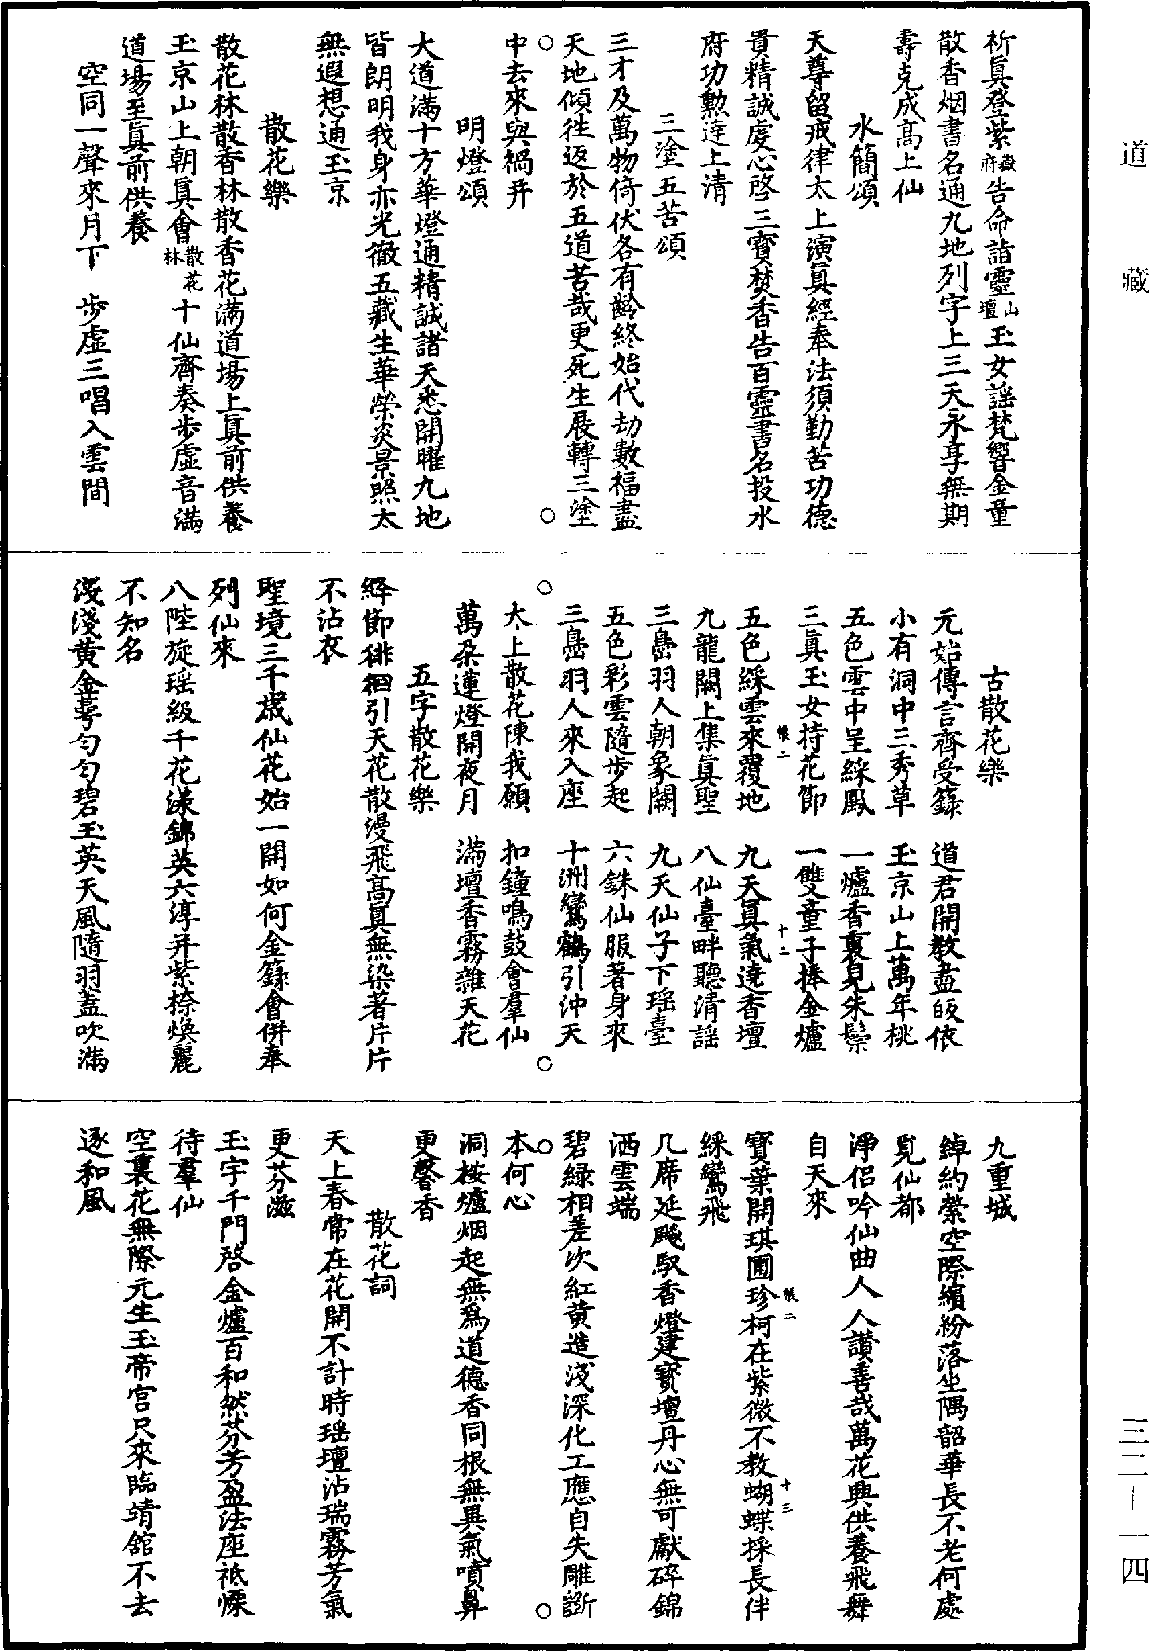 道藏
祈眞登紫嶽府告命詣靈山壇玉女謠梵響金童
散香烟書名通九地列字上三天永享無期
壽克成高上仙
水簡頌
天尊留戒律太上演眞經奉法須勤苦功德
貴精誠虔心啓三寶焚香告百靈書名投水
府功勲達上清
三塗五苦頌
三才及萬物倚伏各有齡終始代劫數福盡
天地傾往返於五道苦哉更死生展轉三塗
中去來與禍并
明燈頌
大道滿十方華燈通精誠諸天悉開曜九地
皆朗明我身亦光徹五藏生華榮炎景照太
無遐想通玉京
散花樂
散花林散香林散香花滿道場上眞前供養
玉京山上朝眞會散花林十仙齊奏步虛音滿
道場至眞前供養
空同一聲來月下 步虛三唱入雲間
古散花樂
元始傳言齊受籙 道君開教盡皈依
小有洞中三秀草 玉京山上萬年桃
五色雲中呈綵鳳 一爐香裏見朱䯻
三眞玉女持花節 一雙童子捧金爐
五色綵雲來覆地 九天眞氣遶香壇
九龍闕上集眞聖 八仙臺畔聽清謠
三島羽人朝象闕 九天仙子下瑶臺
五色彩雲隨步起 六銖仙服著身來
三島羽人來入座 十洲鸞鶴引沖天
太上散花陳我願 扣鐘鳴鼓會羣仙
萬朵蓮燈開夜月 滿壇香霧雜天花
五字散花樂
絳節徘徊引天花散漫飛高眞無染著片片
不沾衣
聖境三千歲仙花始一開如何金籙會併奉
列仙來
八陛旋瑶級千花漾錦英六淳并紫捺煥麗
不知名
淺淺黄金萼勻勻碧玉英天風隨羽蓋吹滿
九重城
綽約縈空際繽紛落坐隅韶華長不老何處
覓仙都
淨侣吟仙曲人人讚善哉萬花興供養飛舞
自天來
寶葉開琪圃珍柯在紫微不教蝴蝶採長伴
綵鸞飛
几席延飈馭香燈建寳壇丹心無可獻碎錦
洒雲端
碧綠相差次紅黄造淺深化工應自失雕斵
本何心
洞桉爐烟起無爲道德香同根無異氣噴鼻
更馨香
散花詞
天上春常在花開不計時瑶壇沾瑞霧芳氣
更芬滋
玉宇千門啓金爐百和然芬芳盈法座祇慄
待羣仙
空裏花無際元生玉帝宮只來臨靖館不去
逐和風
三二—一四